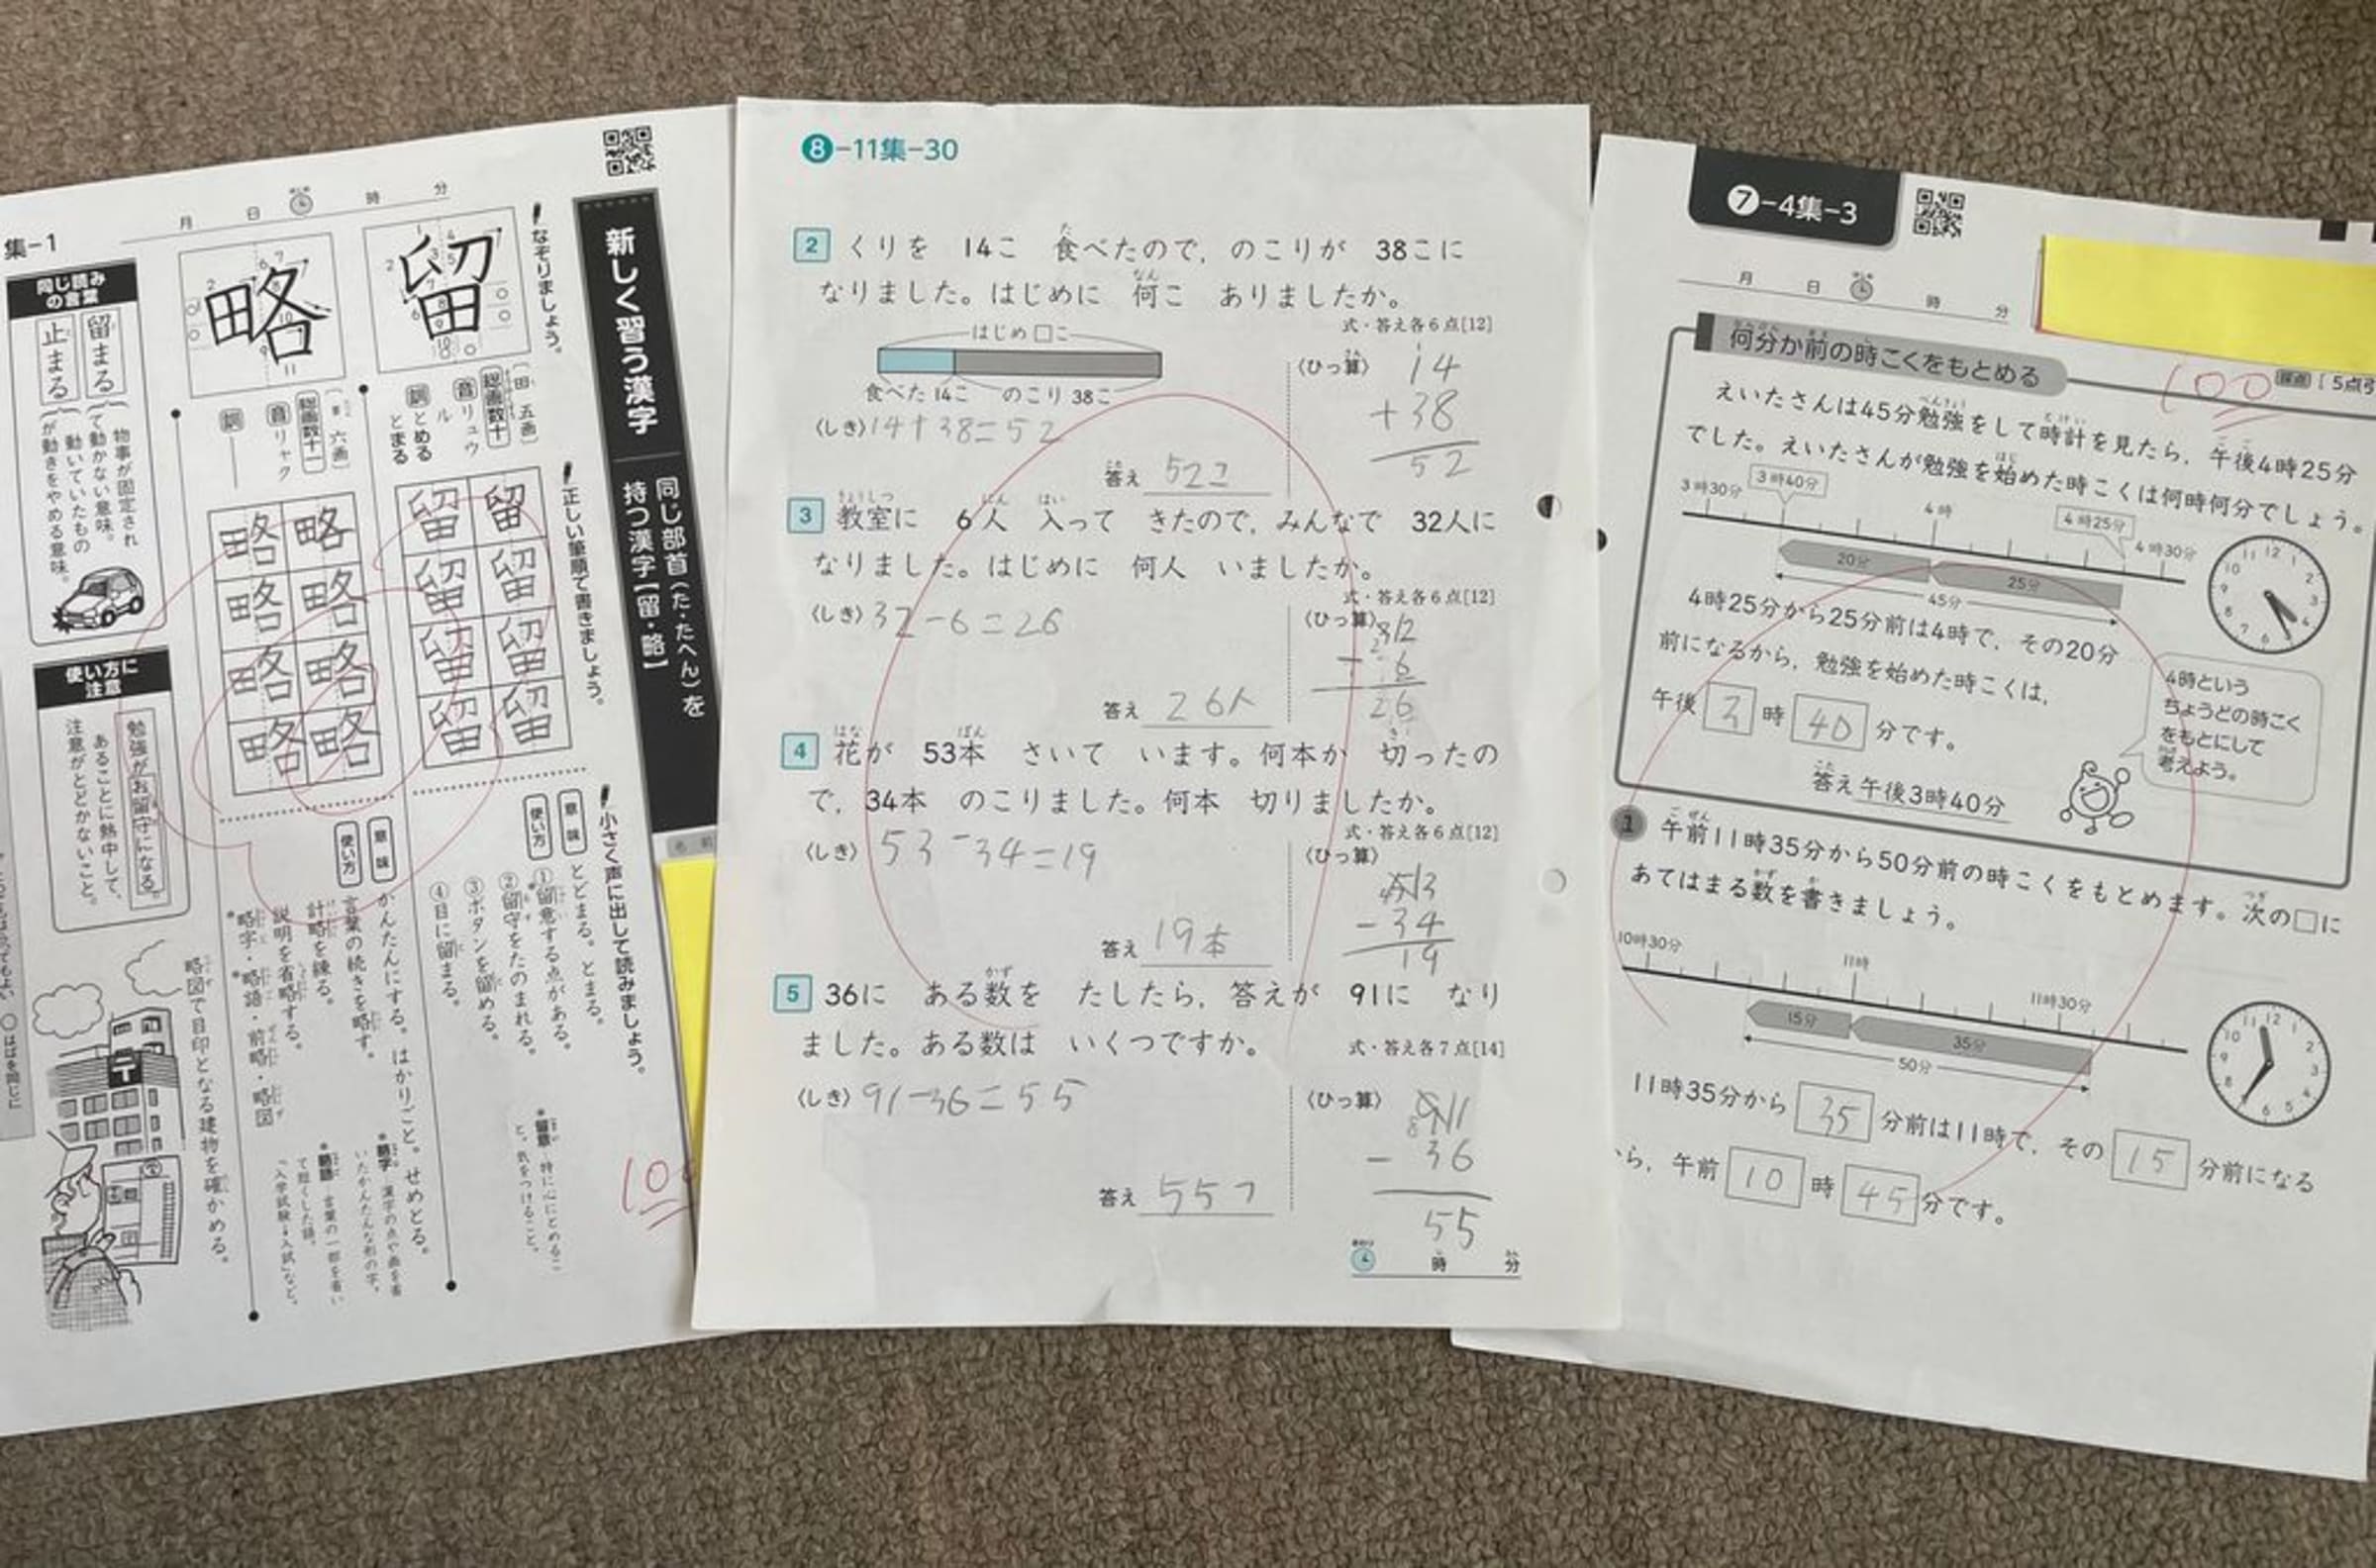 集-1
月 日 時 分
新しく習う漢字
同じ部首(た・たへん)を
持つ漢字【留・略】
なぞりましょう。
留
[田 五画]
総画数十
音 リュウ
ル
訓 とめる
とまる
略
総画数十一
音 リャク
訓
正しい筆順で書きましょう。
留 留
留 留
留 留
留 留
略 略
略 略
略 略
略 略
小さく声に出して読みましょう。
意味 とどまる。とまる。
使い方 ①留意する点がある。
②留守をたのまれる。
③ボタンを留める。
④目に留まる。
*留意 特に心にとめるこ
と。気をつけること。
意味 かんたんにする。はかりごと。せめとる。
使い方 言葉の続きを略す。
計略を練る。
説明を省略する。
*略字・*略語・前略・略図
略図で目印となる建物を確かめる。
*略字 漢字の点や画を省
いたかんたんな形の字。
*略語 言葉の一部を省い
て短くした語。
「入学試験→入試」など。
同じ読み
の言葉
留まる
物事が固定され
て動かない意味。
止まる
動いていたもの
が動きをやめる意味。
使い方に
注意
勉強がお留守になる。
あることに熱中して、
注意がとどかないこと。
8-11集-30
2 くりを 14こ 食べたので,のこりが 38こに
なりました。はじめに 何こ ありましたか。
式・答え各6点[12]
はじめ□こ
食べた 14こ のこり 38こ
〈しき〉14+38=52
答え 52こ
〈ひっ算〉
14
+38
52
3 教室に 6人 入って きたので,みんなで 32人に
なりました。はじめに 何人 いましたか。
式・答え各6点[12]
〈しき〉32-6=26
答え 26人
〈ひっ算〉
- 6
26
4 花が 53本 さいて います。何本か 切ったの
で,34本 のこりました。何本 切りましたか。
式・答え各6点[12]
〈しき〉53-34=19
答え 19本
〈ひっ算〉
-34
19
5 36に ある数を たしたら,答えが 91に なり
ました。ある数は いくつですか。
式・答え各7点[14]
〈しき〉91-36=55
答え 55
〈ひっ算〉
- 36
55
時 分
7-4集-3
月 日 時 分
100
何分か前の時こくをもとめる
えいたさんは45分勉強をして時計を見たら,午後4時25分
でした。えいたさんが勉強を始めた時こくは何時何分でしょう。
3時30分 3時40分 4時 4時25分 4時30分
20分 25分
45分
4時25分から25分前は4時で,その20分
前になるから,勉強を始めた時こくは,
午後 3 時 40 分です。
答え 午後3時40分
4時という
ちょうどの時こく
をもとにして
考えよう。
1 午前11時35分から50分前の時こくをもとめます。次の□に
あてはまる数を書きましょう。
10時30分 11時 11時30分
15分 35分
50分
11時35分から 35 分前は11時で,その 15 分前になる
から,午前 10 時 45 分です。